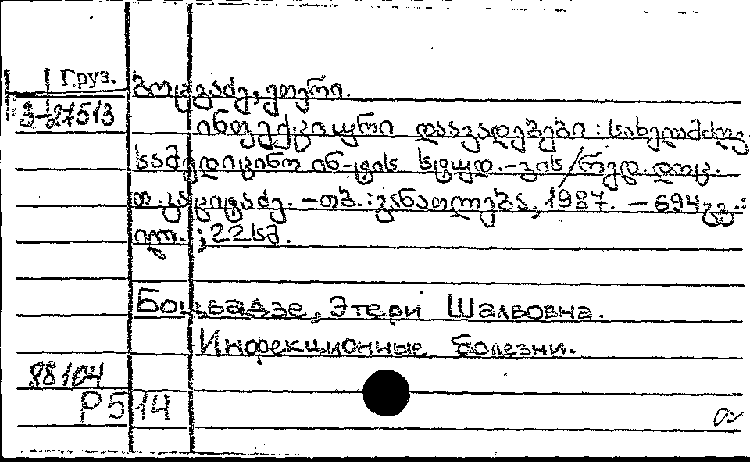 Груз. ბოცვაძე, ეთერი.
3-27513
ინფექციური დაავადებები: სახელმძღვ.
სამედიცინო ინ-ტის სტუდ.-ვის / რედ. დოც.
თ. კაციტაძე. – თბ.: განათლება, 1987. – 694 გვ.:
ილ.; 22 სმ.
Боцвадзе, Этери Шалвовна.
Инфекционные болезни.
88104
Р514